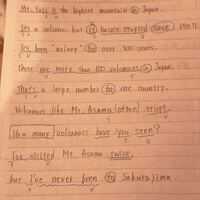 Mt. Fuji is the highest mountain in Japan.
It's a volcano. but it hasn't erupted since 1707.
It's been "asleep" for over 300 years.
There are more than 100 volcanoes in Japan.
That's a large number for one country.
Volcanoes like Mt. Asama often erupt.
How many volcanoes have you seen?
I've visited Mt. Asama twice,
but I've never been to Sakurajima.